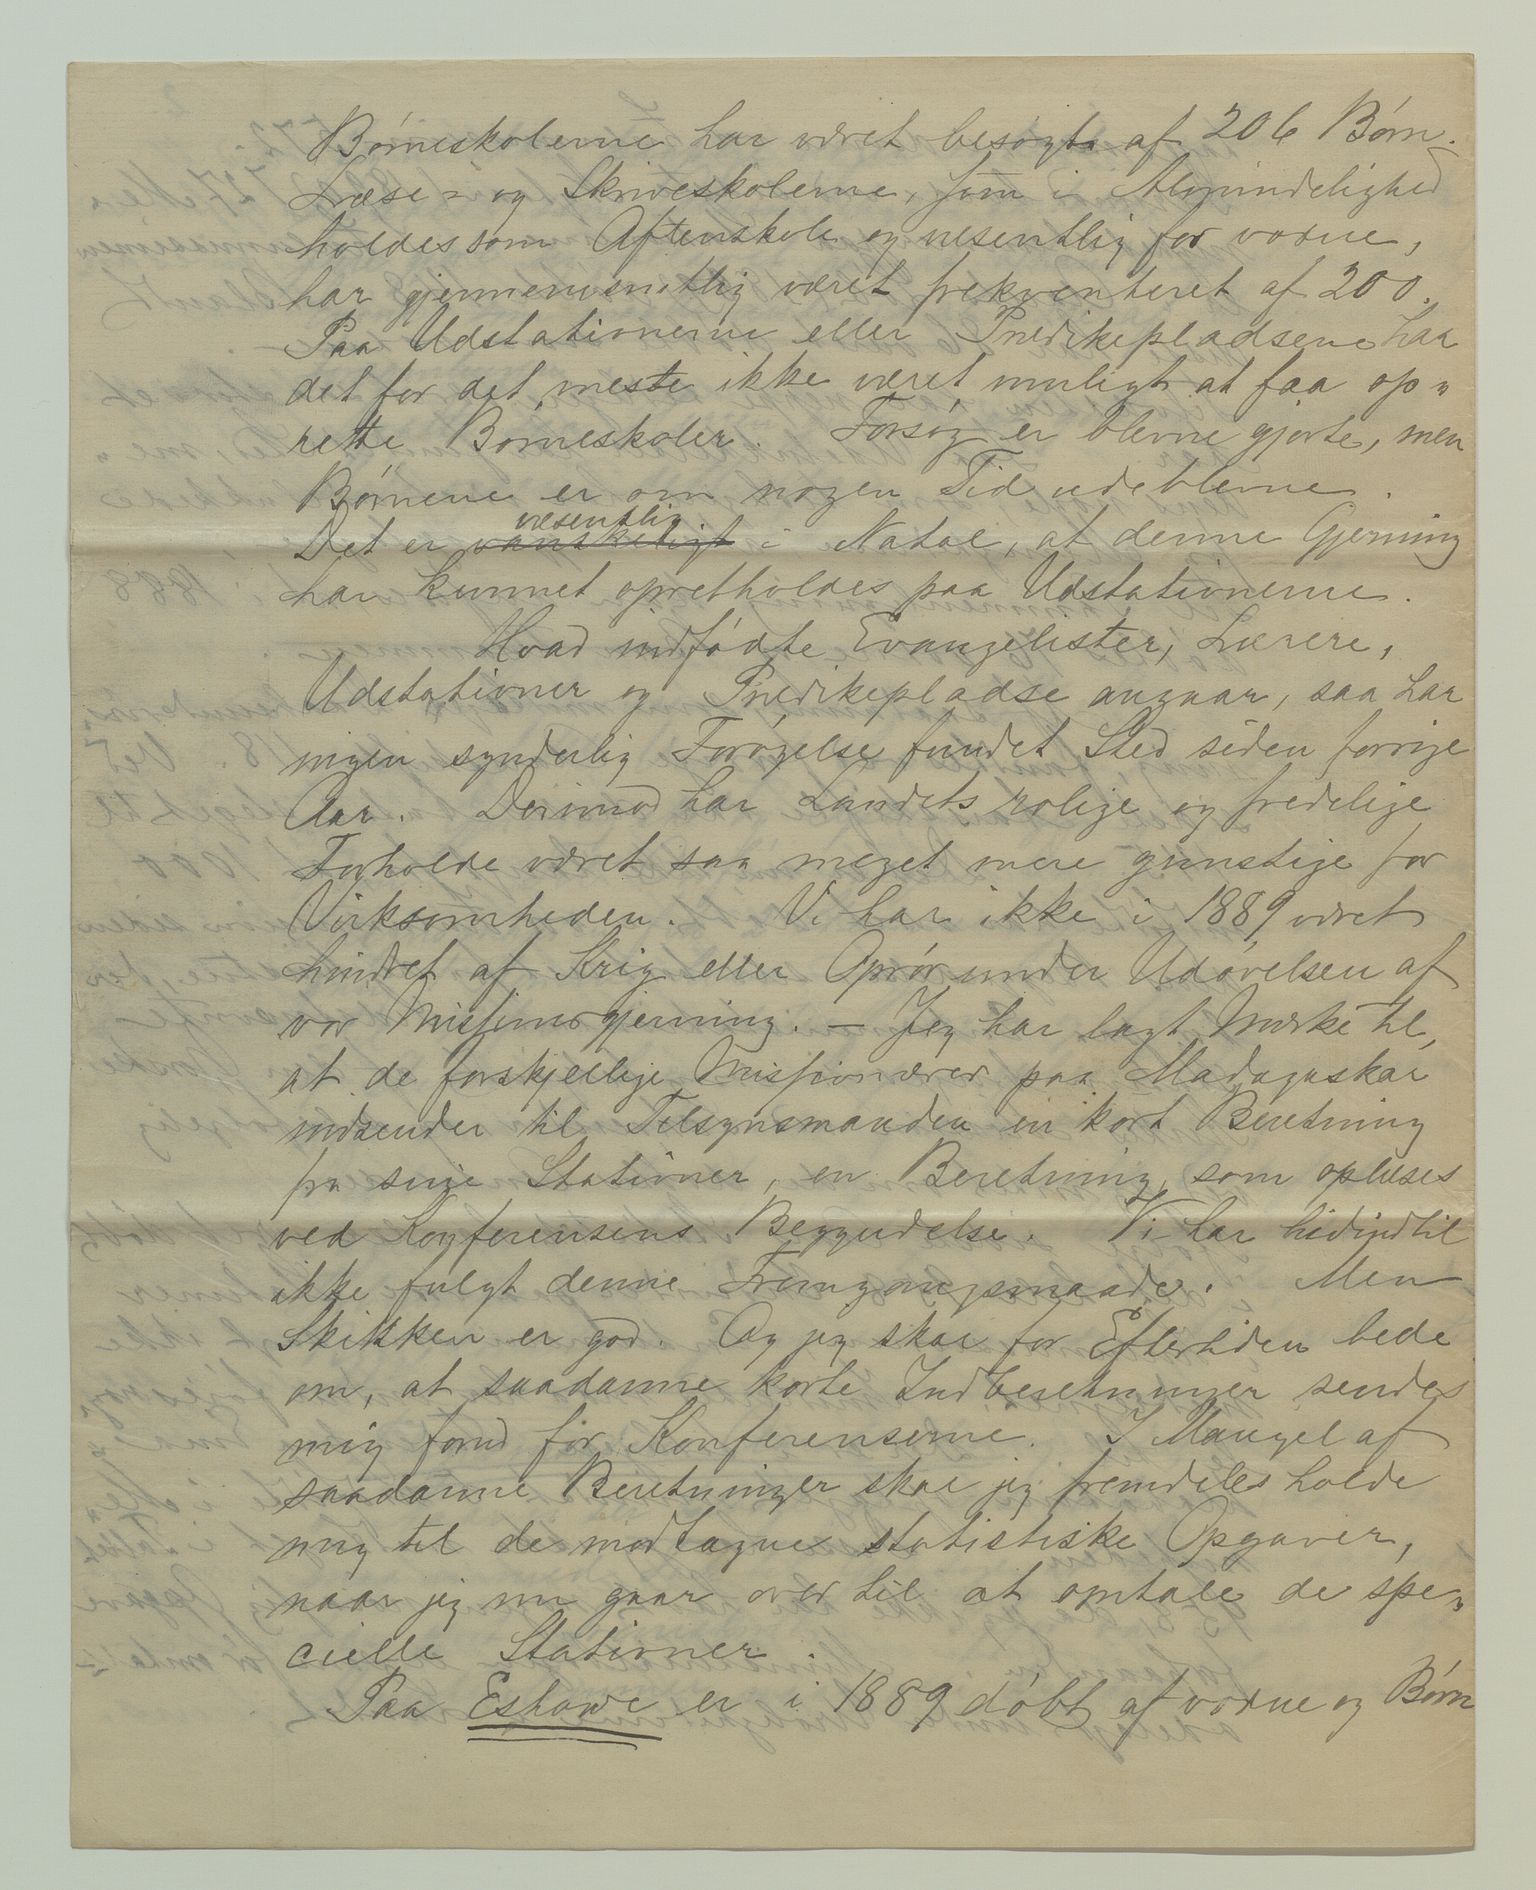 Børneskolerne har været besøgt af 206 Børn.
Læse= og Skriveskolerne, som i Almindelighed
holdes som Aftenskole og vesentlig for voxne,
har gjennemsnitlig været frekventeret af 200.
Paa Udstationerne eller Prædikepladsene har
det for det meste ikke været muligt at faa op„
rette Børneskoler. Forsøg er blevne gjorte, men
Børnene er om nogen Tid udeblevne.
Det er vanskeligt væsentlig i Natal, at denne Gjerning
har kunnet opretholdes paa Udstationerne.
Hvad indfødte Evangelister, Lærere,
Udstationer og Prædikepladse angaar, saa har
ingen synderlig Forøgelse fundet Sted siden forrige
Aar. Derimod har Landets rolige og fredelige
Forholde været saa meget mere gunstige for
Virksomheden. Vi har ikke i 1889 været
hindret af Krig eller Oprør under Udøvelsen af
vor Missionsgjerning. — Jeg har lagt Mærke til,
at de forskjellige Missionærer paa Madagaskar
indsender til Tilsynsmanden en kort Beretning
fra sine Stationer, en Beretning, som oplæses
ved Konferensens Begyndelse. Vi har hidindtil
ikke fulgt denne Fremgangsmaade. Men
Skikken er god. Og jeg skal for Eftertiden bede
om, at saadanne korte Indberetninger sendes
mig forud for Konferenserne. I Mangel af
saadanne Beretninger skal jeg fremdeles holde
mig til de modtagne statistiske Opgaver,
naar jeg nu gaar over til at omtale de spe„
cielle Stationer.
Paa Eshowe er i 1889 døbt af voxne og Børn